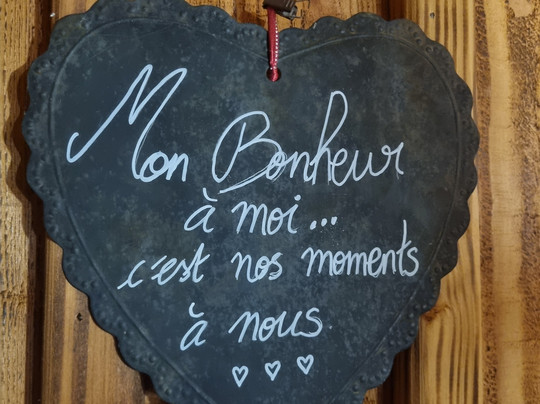 Mon Bonheur
à moi...
c'est nos moments
à nous